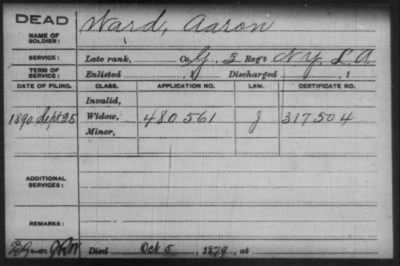 DEAD
NAME OF SOLDIER: Ward, Aaron
SERVICE: Late rank, Co. G, 2 Reg't N Y L A
TERM OF SERVICE: Enlisted , 1 Discharged , 1
DATE OF FILING. CLASS. APPLICATION NO. LAW. CERTIFICATE NO.
Invalid,
1890 Sept 25 Widow, 480561 J 317504
Minor,
ADDITIONAL SERVICES:
REMARKS:
Died Oct 5, 1879, at